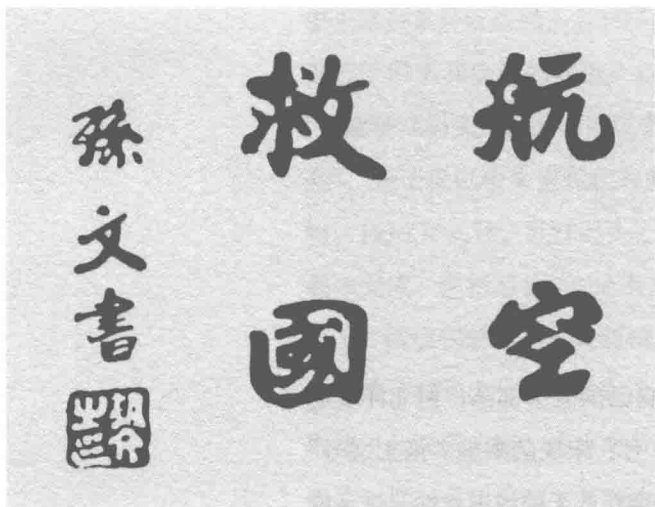 航空
救國
孫文書